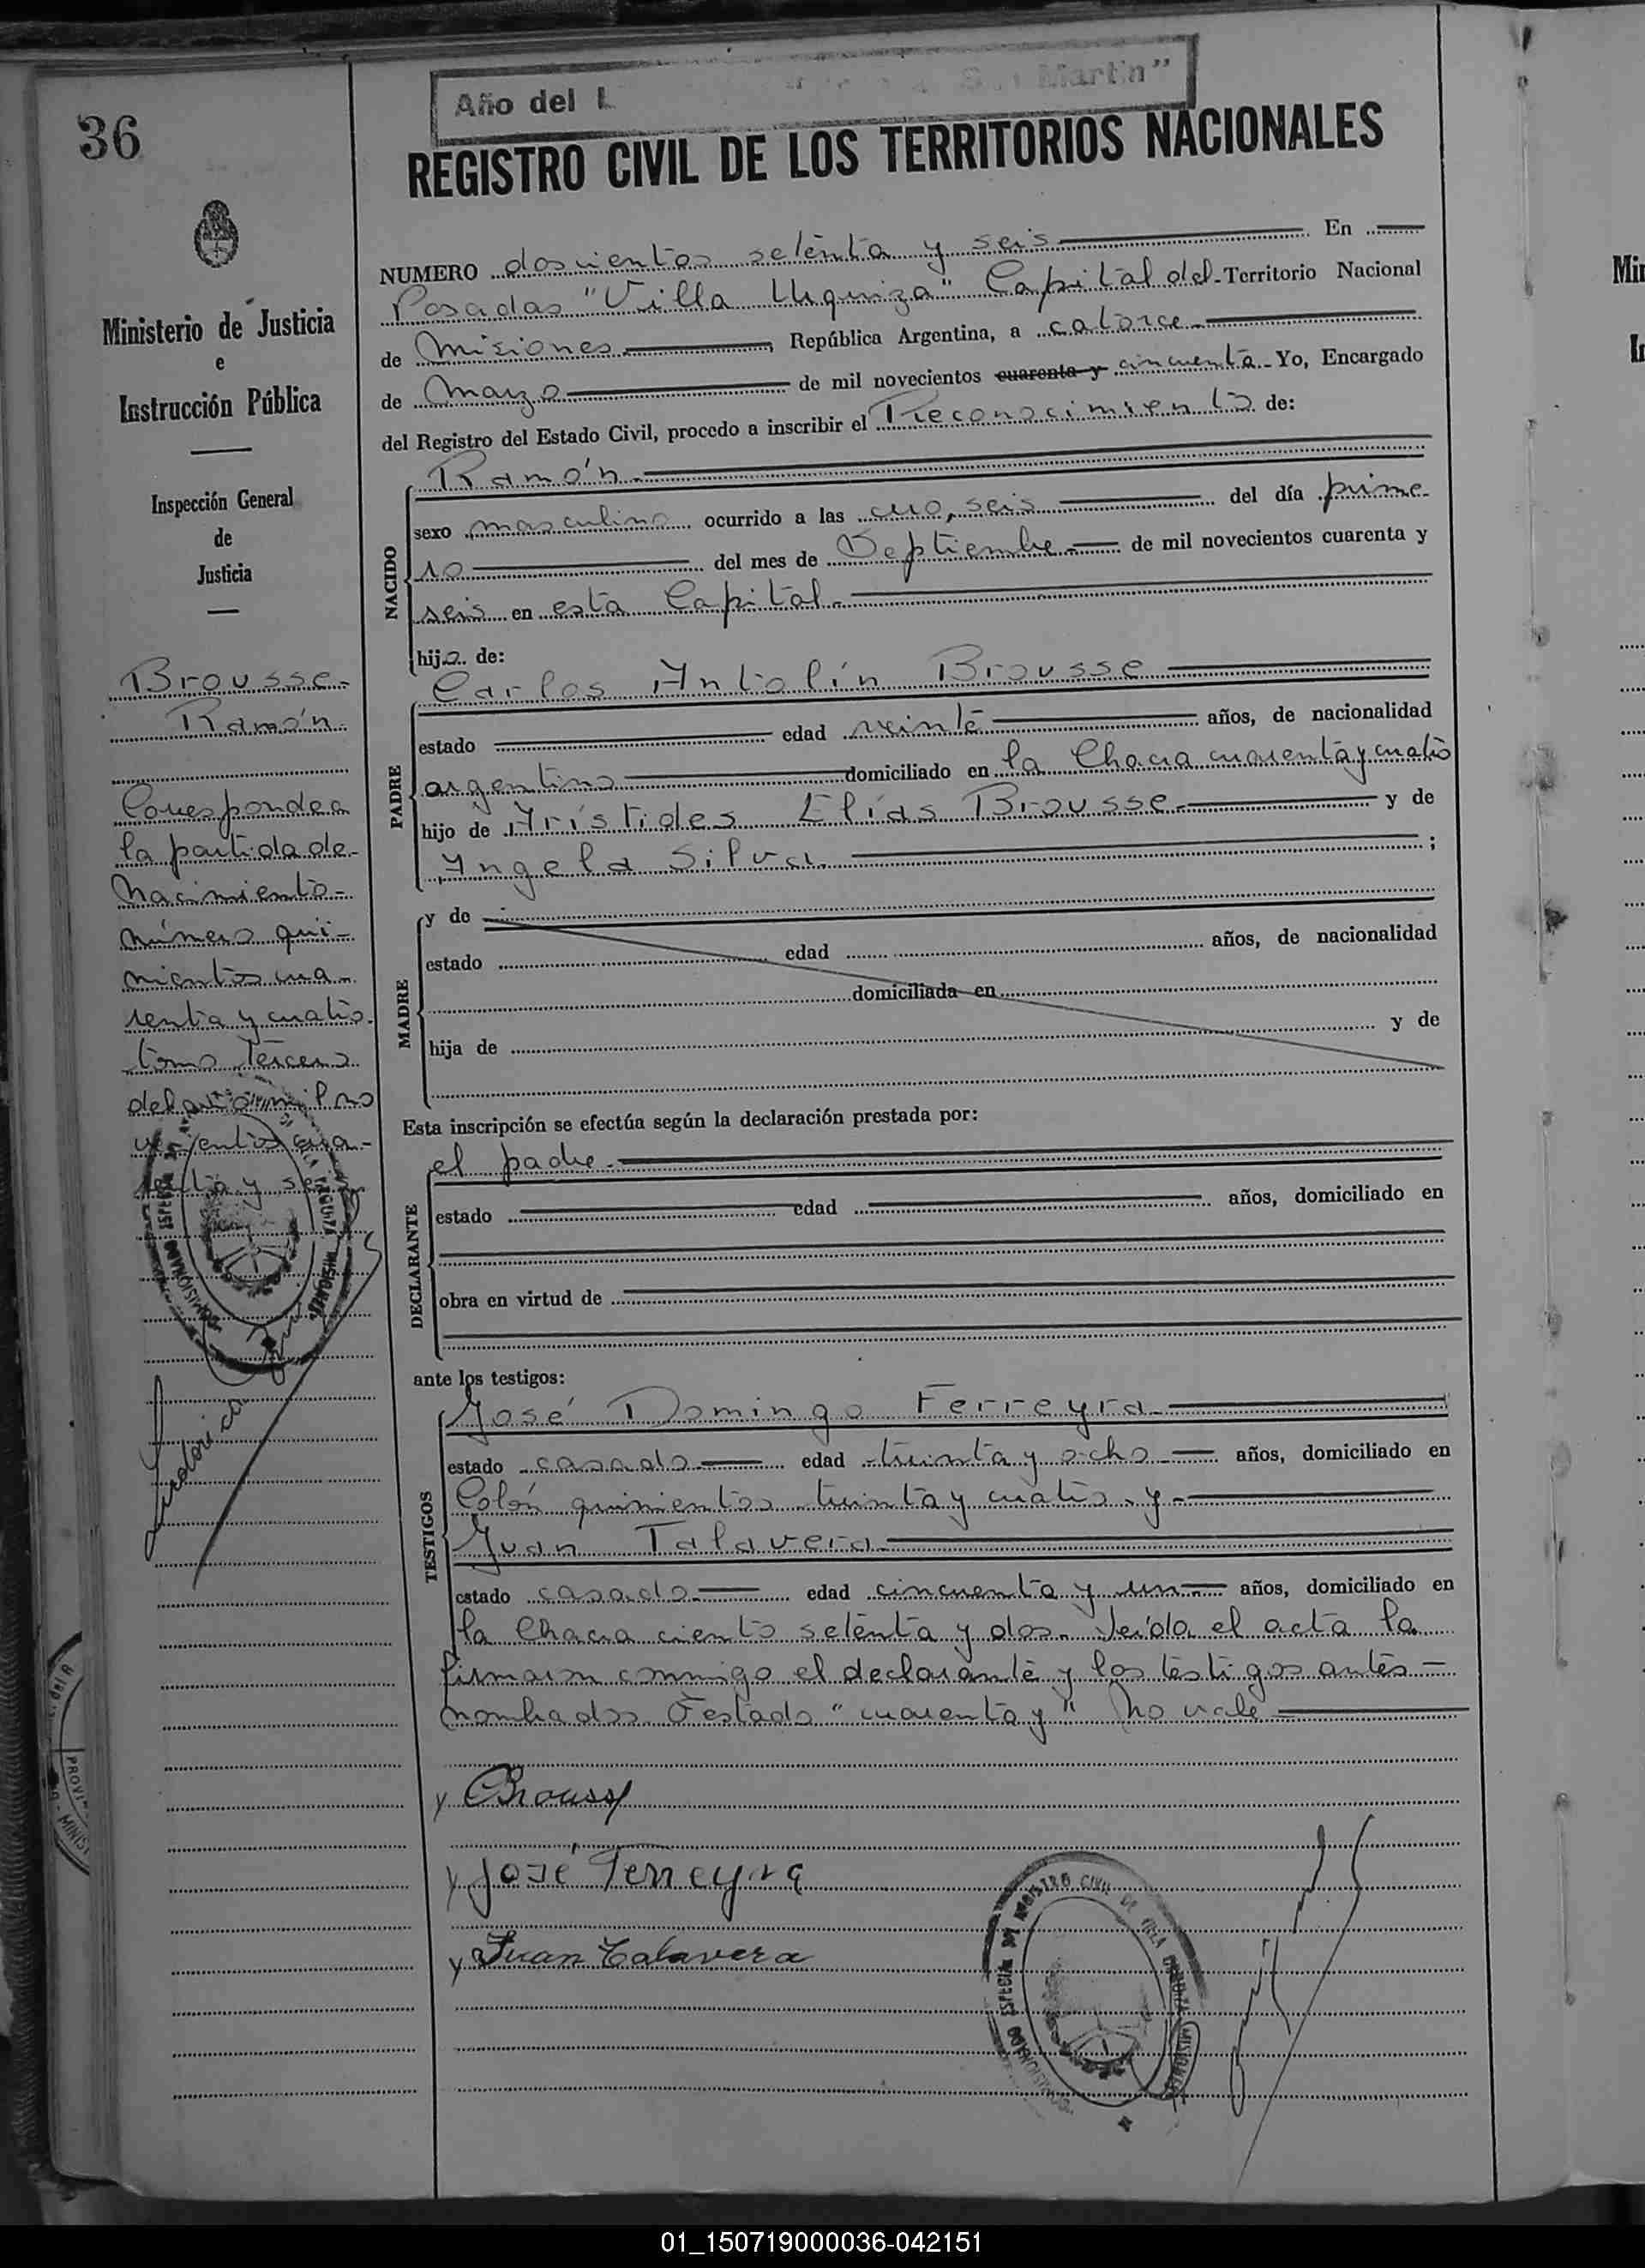 36
Año del L
Martín"
REGISTRO CIVIL DE LOS TERRITORIOS NACIONALES
Ministerio de Justicia
e
Instrucción Pública
Inspección General
de
Justicia
Brousse
Ramón
Corresponde a
la partida de
Nacimiento
número qui-
nientos cua-
renta y cuatro
tomo Tercero
del año mil no
vecientos cua-
renta y seis
NUMERO doscientos setenta y seis En
Posadas "Villa Urquiza" Capital del Territorio Nacional
de Misiones, República Argentina, a catorce
de Marzo de mil novecientos cuarenta y cincuenta Yo, Encargado
del Registro del Estado Civil, procedo a inscribir el Reconocimiento de:
NACIDO
Ramón
sexo masculino ocurrido a las cero, seis del día prime-
ro del mes de Septiembre de mil novecientos cuarenta y
seis en esta Capital
hijo de:
PADRE
Carlos Antolín Brousse
estado edad veinte años, de nacionalidad
argentino domiciliado en la Chacra cuarenta y cuatro
hijo de Arístides Elías Brousse y de
Angela Silva ;
MADRE
y de
estado edad años, de nacionalidad
domiciliada en
hija de y de
Esta inscripción se efectúa según la declaración prestada por:
DECLARANTE
el padre
estado edad años, domiciliado en
obra en virtud de
ante los testigos:
TESTIGOS
José Domingo Ferreyra
estado casado edad treinta y ocho años, domiciliado en
Colón quinientos treinta y cuatro y
Juan Talavera
estado casado edad cincuenta y un años, domiciliado en
la Chacra ciento setenta y dos. Leída el acta la
firmaron conmigo el declarante y los testigos antes
nombrados Testado "cuarenta y" No vale
Brousse
José Ferreyra
Juan Talavera
REGISTRO CIVIL DE
ESPECIAL
MISIONES
PROVI
MINIS
01_150719000036-042151